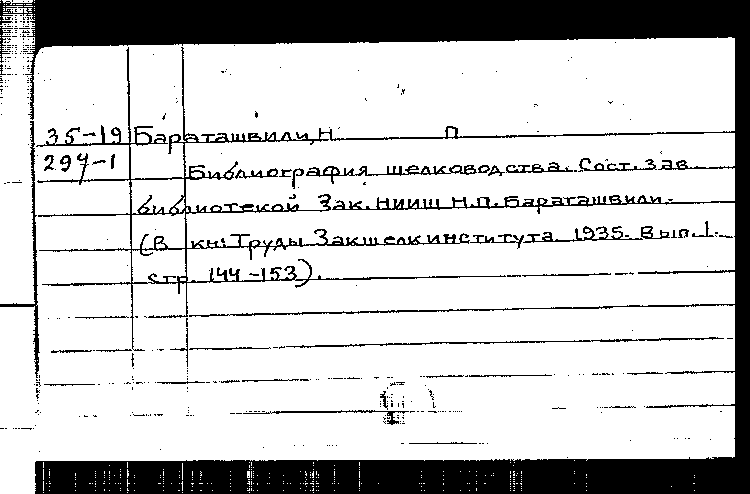 35-19 Бараташвили, Н П
294-1 Библиография шелководства. Сост. зав.
библиотекой Зак. НИИШ Н.П. Бараташвили.
(В кн: Труды Закшелкинститута 1935. Вып. 1.
стр. 144-153).